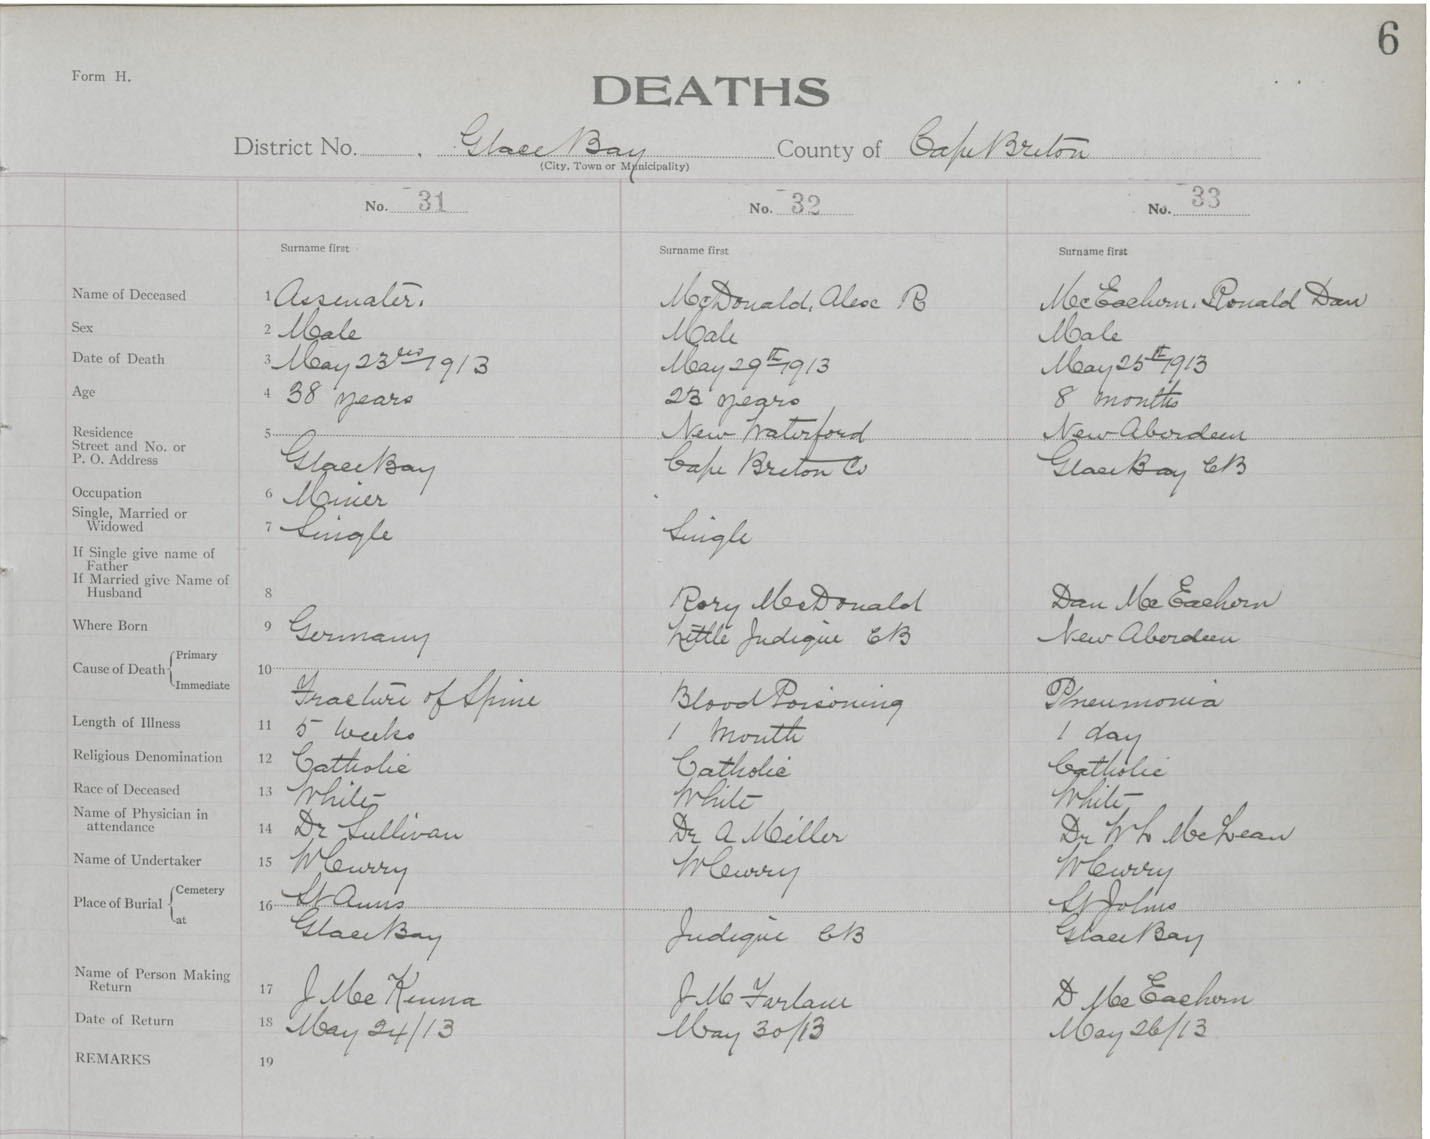 6
Form H.
DEATHS
District No. Glace Bay County of Cape Breton
(City, Town or Municipality)
No. 31 No. 32 No. 33
Surname first Surname first Surname first
Name of Deceased 1 Assenater. McDonald, Alex R McEachern, Ronald Dan
Sex 2 Male Male Male
Date of Death 3 May 23rd 1913 May 29th 1913 May 25th 1913
Age 4 38 years 23 years 8 months
Residence 5 New Waterford New Aberdeen
Street and No. or
P. O. Address Glace Bay Cape Breton Co Glace Bay CB
Occupation 6 Miner
Single, Married or
Widowed 7 Single Single
If Single give name of
Father
If Married give Name of
Husband 8 Rory McDonald Dan McEachern
Where Born 9 Germany Little Judique CB New Aberdeen
Cause of Death Primary 10
Immediate Fracture of Spine Blood Poisoning Pneumonia
Length of Illness 11 5 weeks 1 month 1 day
Religious Denomination 12 Catholic Catholic Catholic
Race of Deceased 13 White White White
Name of Physician in
attendance 14 Dr Sullivan Dr A Miller Dr W L McLean
Name of Undertaker 15 W Curry W Curry W Curry
Place of Burial Cemetery 16 St Anns St Johns
at Glace Bay Judique CB Glace Bay
Name of Person Making
Return 17 J McKenna J McFarlane D McEachern
Date of Return 18 May 24/13 May 30/13 May 26/13
REMARKS 19